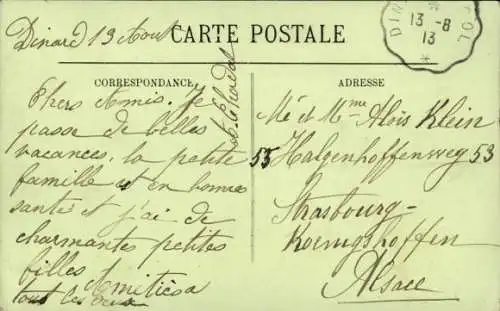 Dinard 13 Aout
CARTE POSTALE
DIN
OL
13 -8
13
CORRESPONDANCE
ADRESSE
Chers Amis. Je
passe de belles
vacances, la petite
famille est en bonne
santé et j'ai de
charmantes petites
filles Amitiés a
tous les deux
Mé et Mme Aloïs Klein
55 Halgenhoffenweg 53
Strasbourg-
Koenigshoffen
Alsace